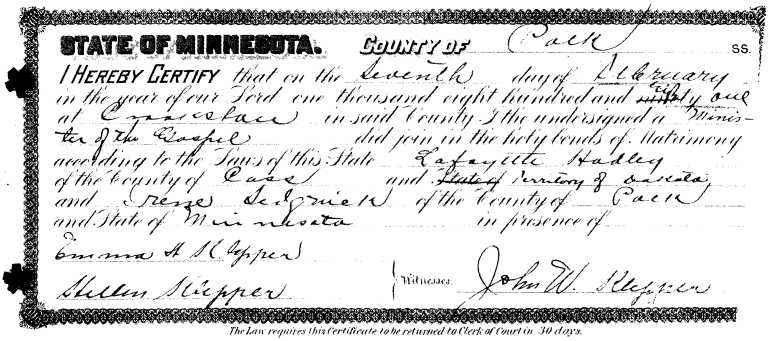 STATE OF MINNESOTA. COUNTY OF Polk SS.
I HEREBY CERTIFY that on the Seventh day of February
in the year of our Lord one thousand eight hundred and eighty one
at Crookston in said County I the undersigned a Minis-
ter of the Gospel did join in the holy bonds of Matrimony
according to the Laws of this State Lafayette Hadley
of the County of Cass and State of Territory of Dakota
and Irene Sedgwick of the County of Polk
and State of Minnesota in presence of
Emma H Klepper
Hellen Klepper Witnesses. John W. Klepper
The Law requires this Certificate to be returned to Clerk of Court in 30 days.